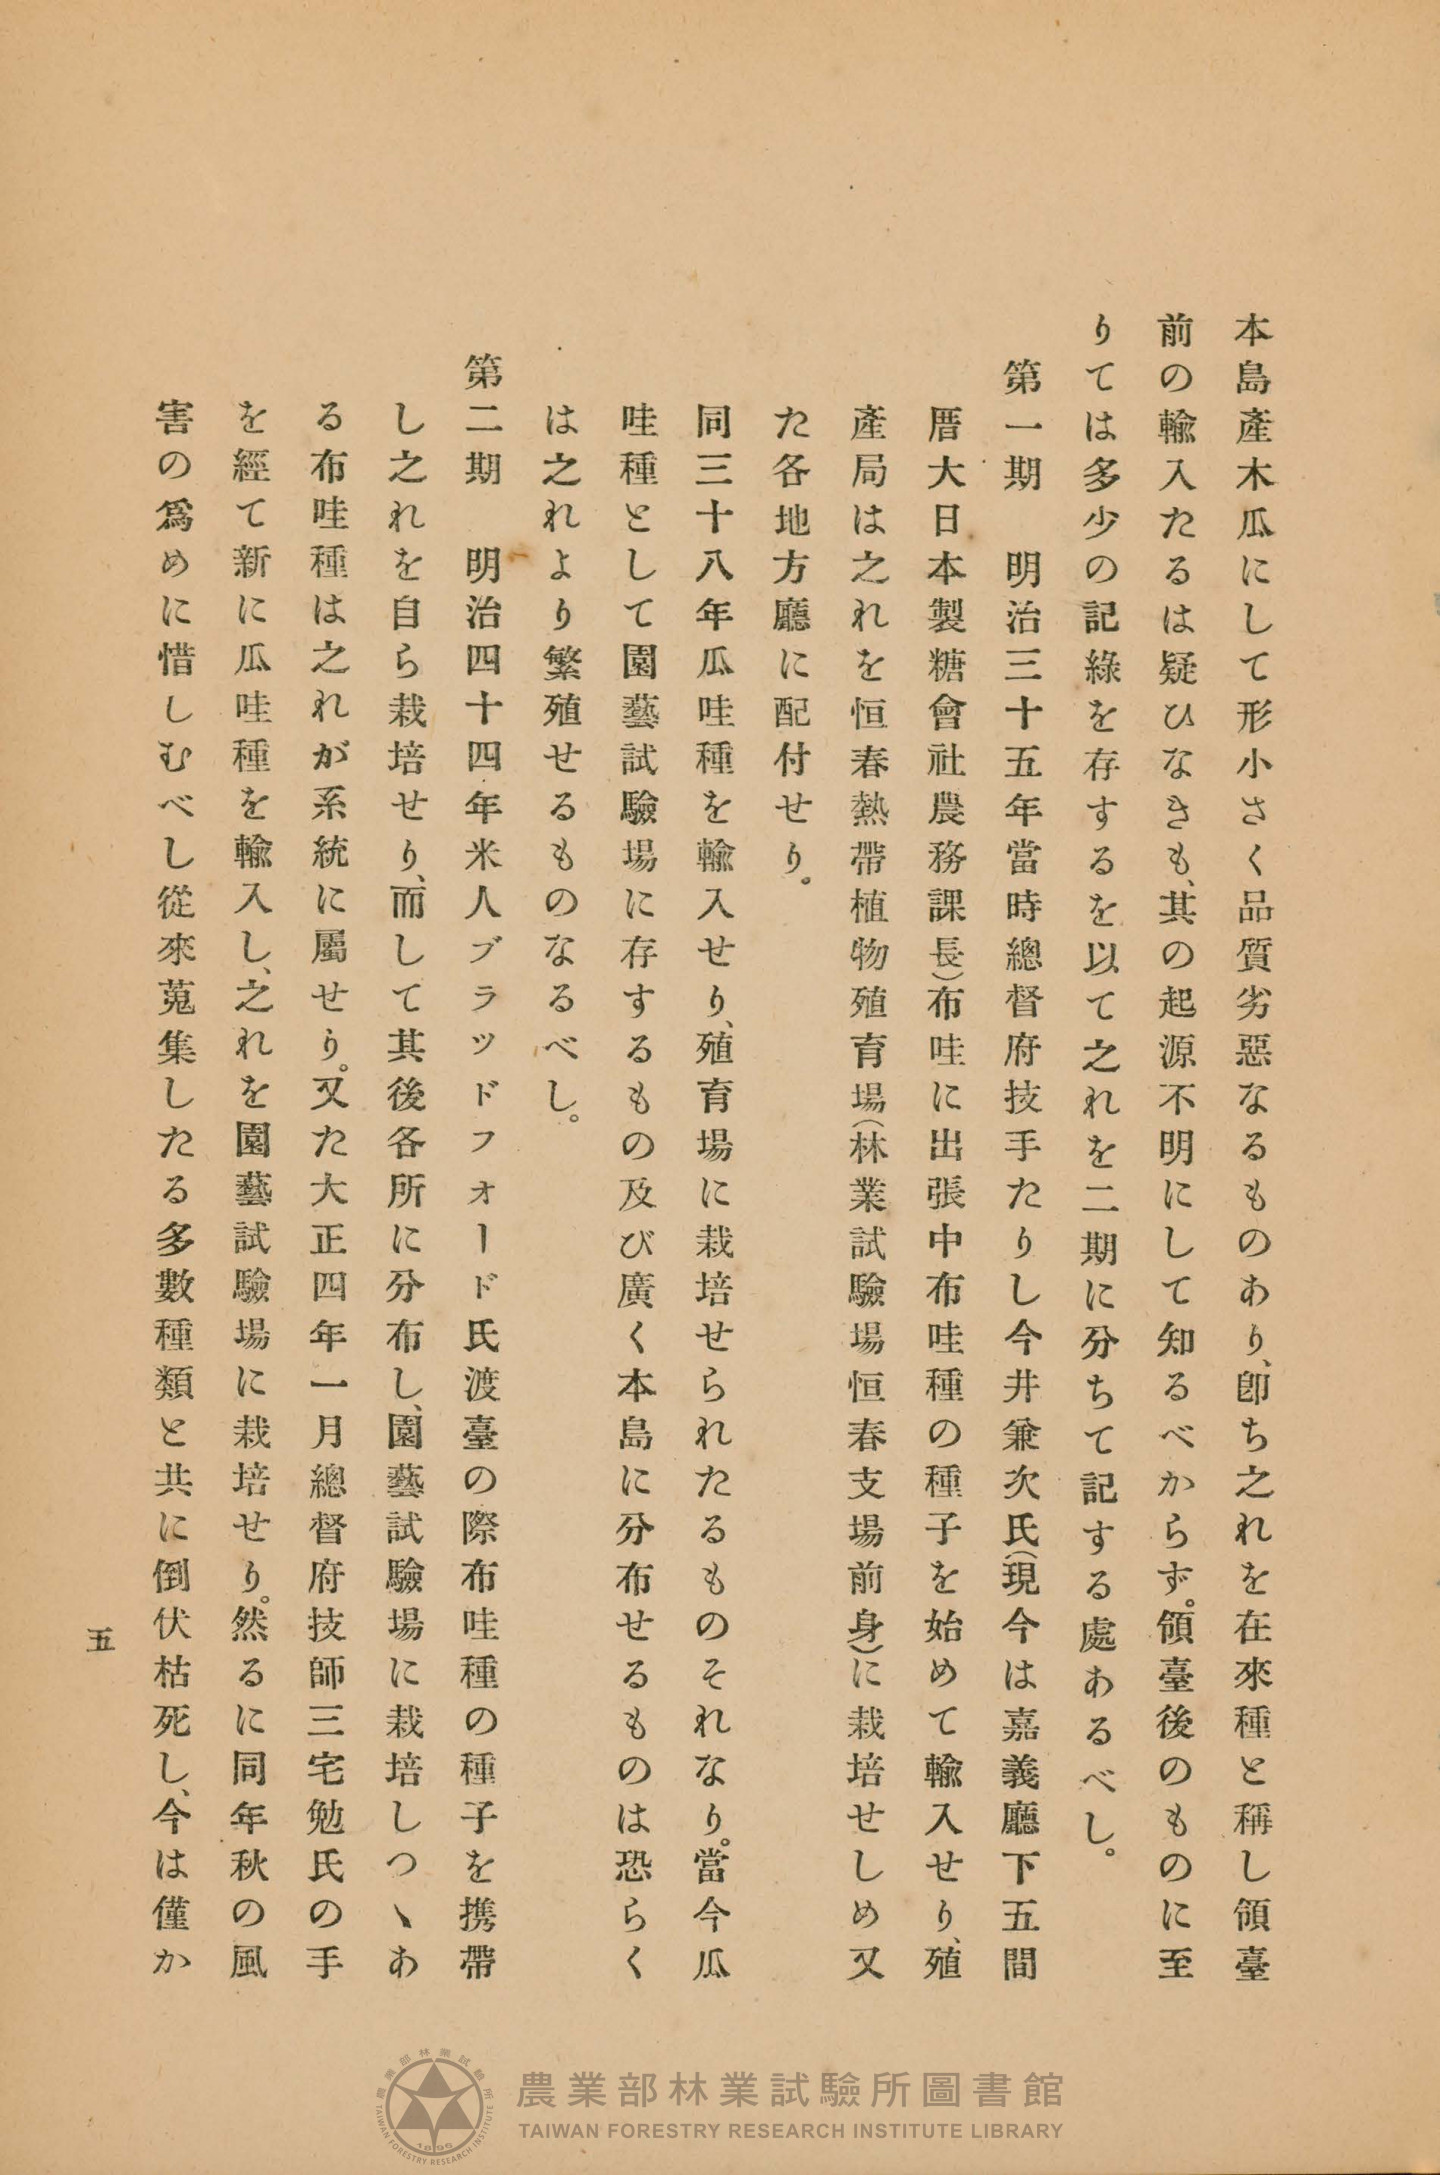 本島產木瓜にして形小さく品質劣惡なるものあり、卽ち之れを在來種と稱し領臺
前の輸入たるは疑ひなきも、其の起源不明にして知るべからず。領臺後のものに至
りては多少の記綠を存するを以て之れを二期に分ちて記する處あるべし。
第一期　明治三十五年當時總督府技手たりし今井兼次氏(現今は嘉義廳下五間
厝大日本製糖會社農務課長)布哇に出張中布哇種の種子を始めて輸入せり、殖
產局は之れを恒春熱帶植物殖育場(林業試驗場恒春支場前身)に栽培せしめ又
た各地方廳に配付せり。
同三十八年瓜哇種を輸入せり、殖育場に栽培せられたるものそれなり。當今瓜
哇種として園藝試驗場に存するもの及び廣く本島に分布せるものは恐らく
は之れより繁殖せるものなるべし。
第二期　明治四十四年米人ブラッドフォード氏渡臺の際布哇種の種子を携帶
し之れを自ら栽培せり、而して其後各所に分布し、園藝試驗場に栽培しつゝあ
る布哇種は之れが系統に屬せり。又た大正四年一月總督府技師三宅勉氏の手
を經て新に瓜哇種を輸入し、之れを園藝試驗場に栽培せり。然るに同年秋の風
害の爲めに惜しむべし從來蒐集したる多數種類と共に倒伏枯死し、今は僅か
五
農業部林業試驗所圖書館
TAIWAN FORESTRY RESEARCH INSTITUTE LIBRARY
農業部林業試驗所
TAIWAN FORESTRY RESEARCH INSTITUTE
1896